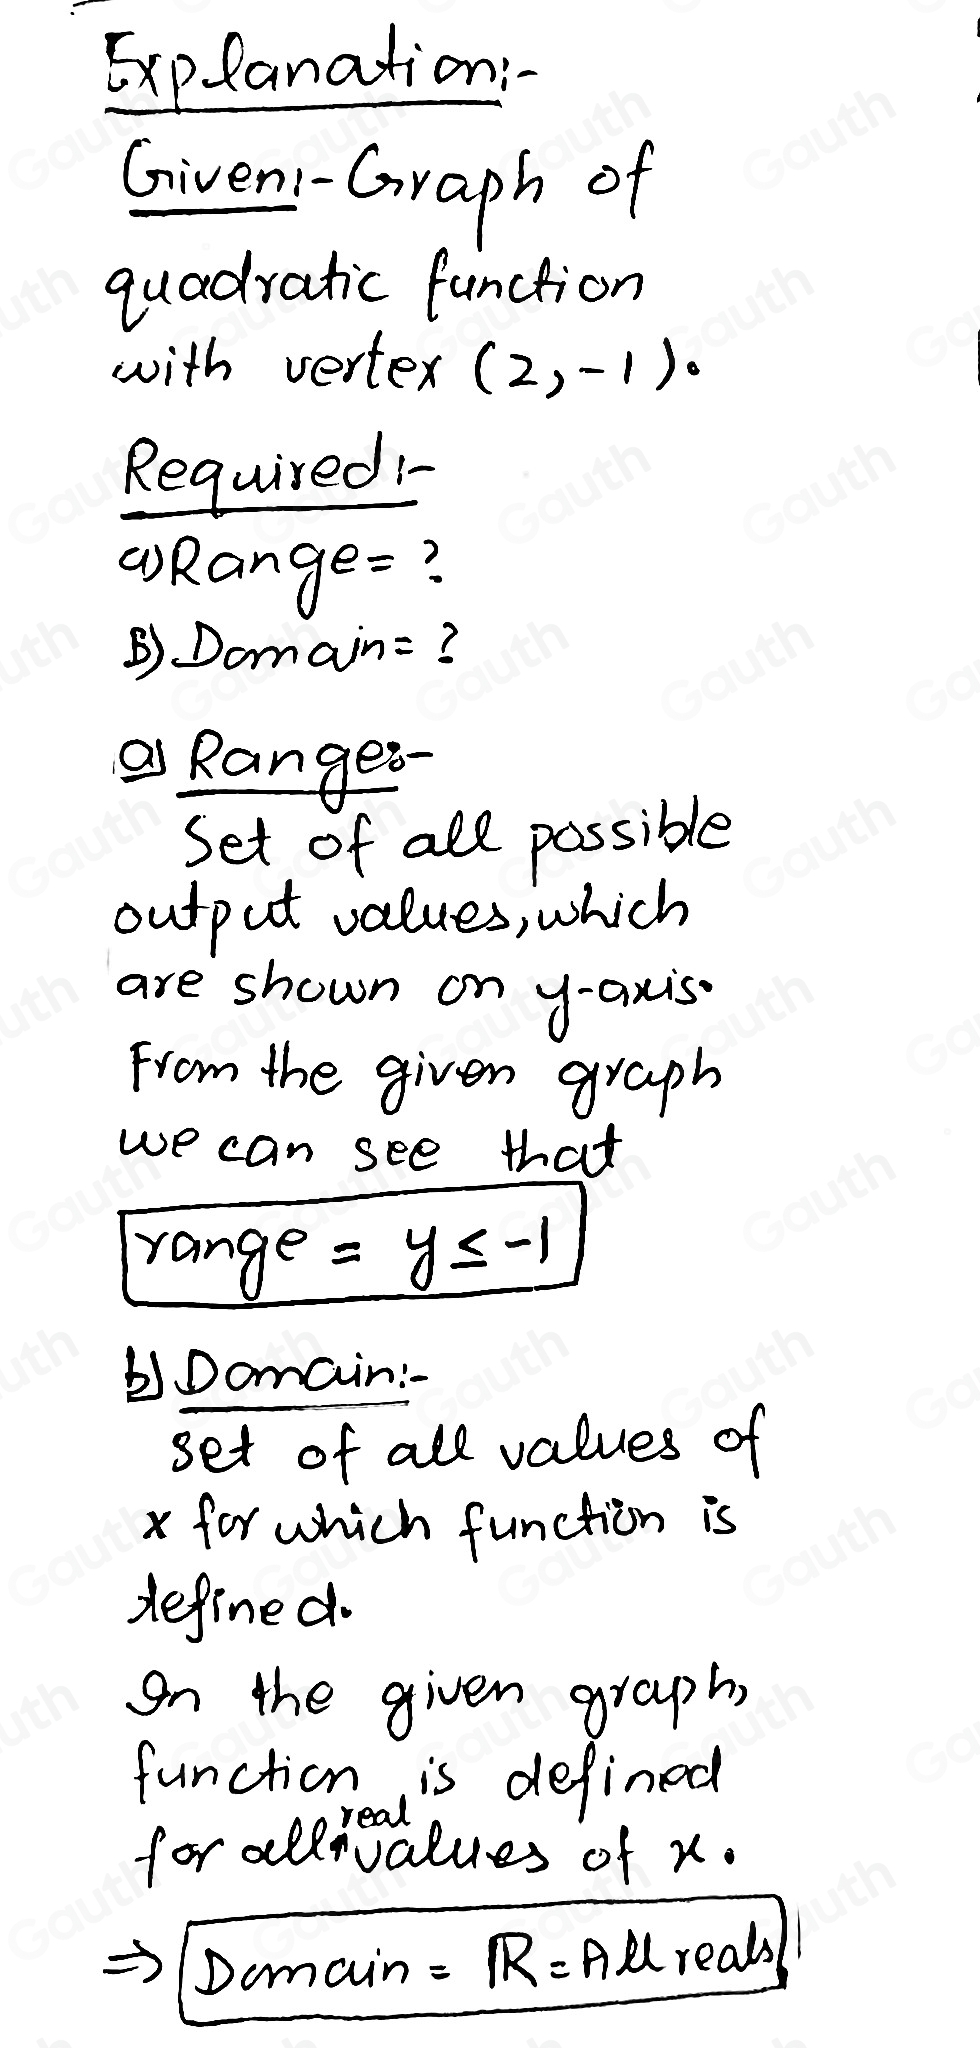 Explanation:-
Given:- Graph of
quadratic function
with vertex (2,-1).
Required:-
a) Range = ?
B) Domain = ?
a) Range:-
Set of all possible
output values, which
are shown on y-axis.
From the given graph
we can see that
range = y ≤ -1
b) Domain:-
set of all values of
x for which function is
defined.
In the given graph,
function is defined
for all real values of x.
⇒ Domain = ℝ = All reals